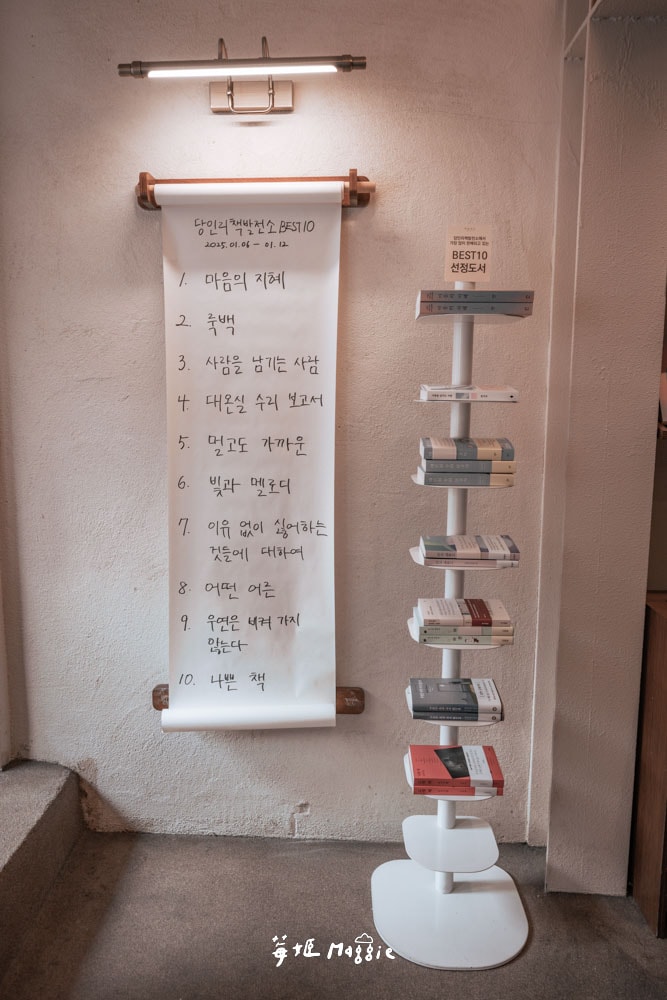 당인리책발전소 BEST10
2025.01.06 - 01.12
1. 마음의 지혜
2. 죽백
3. 사람을 남기는 사람
4. 대온실 수리 보고서
5. 멀고도 가까운
6. 빛과 멜로디
7. 이유 없이 싫어하는
것들에 대하여
8. 어떤 어른
9. 우연은 비켜 가지
않는다
10. 나쁜 책
당인리책발전소에서
가장 많이 판매되고 있는
BEST10
선정도서
莓姬 Maggie